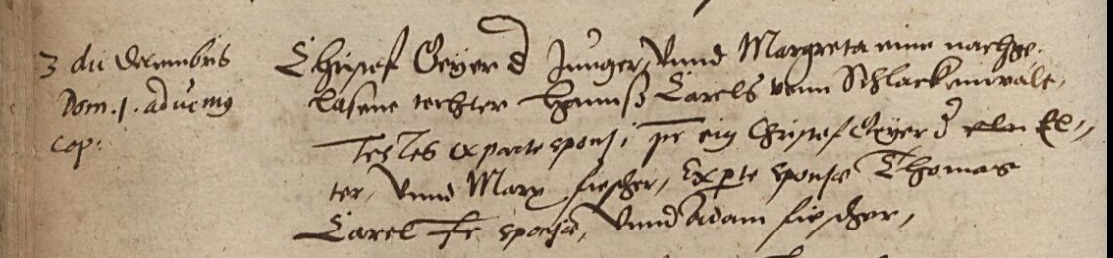 3 die Decembris
Dom. 1. adventus
cop:
Christof Geyer d Junger, Vnnd Margreta eine nachge-
lasene tochter Hannß Carels vonn Schlackenwalt,
Testes ex parte sponsi, pr eius Christof Geyer d El-
ter, Vnnd Marx fiescher, Ex pte sponsæ Thomas
Carel fr sponsæ, Vnnd Adam fiescher,